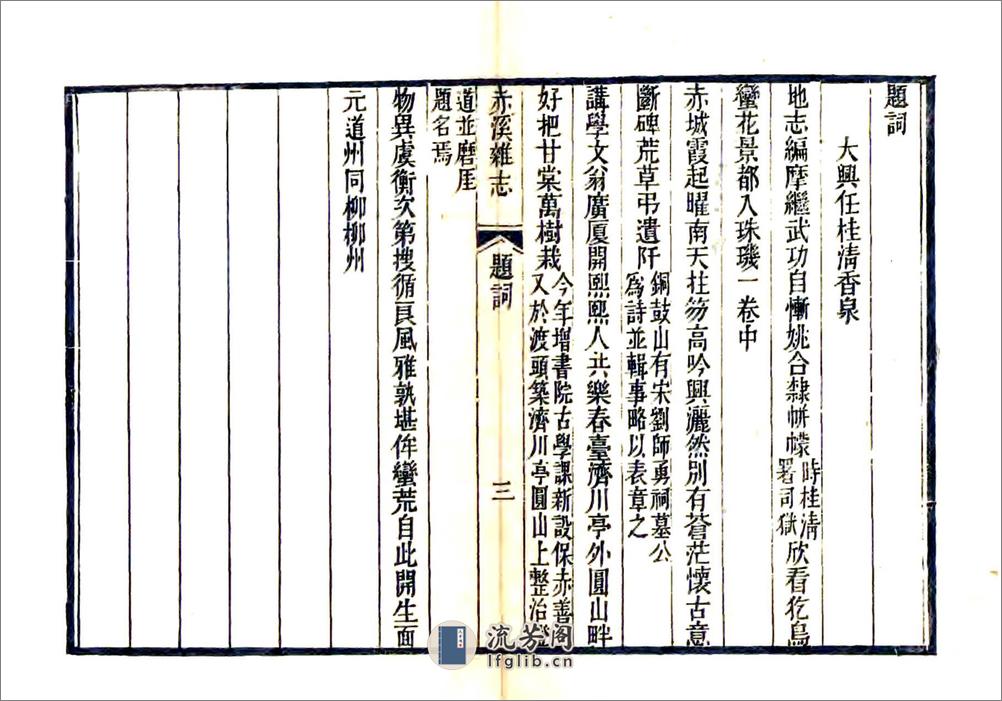 題詞
大興任桂清香泉
地志編摩繼武功自慚姚合隸帡幪時桂清署司獄欣看犵鳥
蠻花景都入珠璣一卷中
赤城霞起曜南天柱笏高吟興灑然別有蒼茫懷古意
斷碑荒草弔遺阡銅鼓山有宋劉師勇祠墓公爲詩並輯事略以表章之
講學文翁廣厦開熙熙人共樂春臺濟川亭外圓山畔
好把甘棠萬樹栽今年增書院古學課新設保赤善又於渡頭築濟川亭圓山上整治
赤溪雜志
題詞
三
道並磨厓題名焉
物異虞衡次第搜循良風雅孰堪侔蠻荒自此開生面
元道州同柳柳州
流芳阁
lfglib.cn